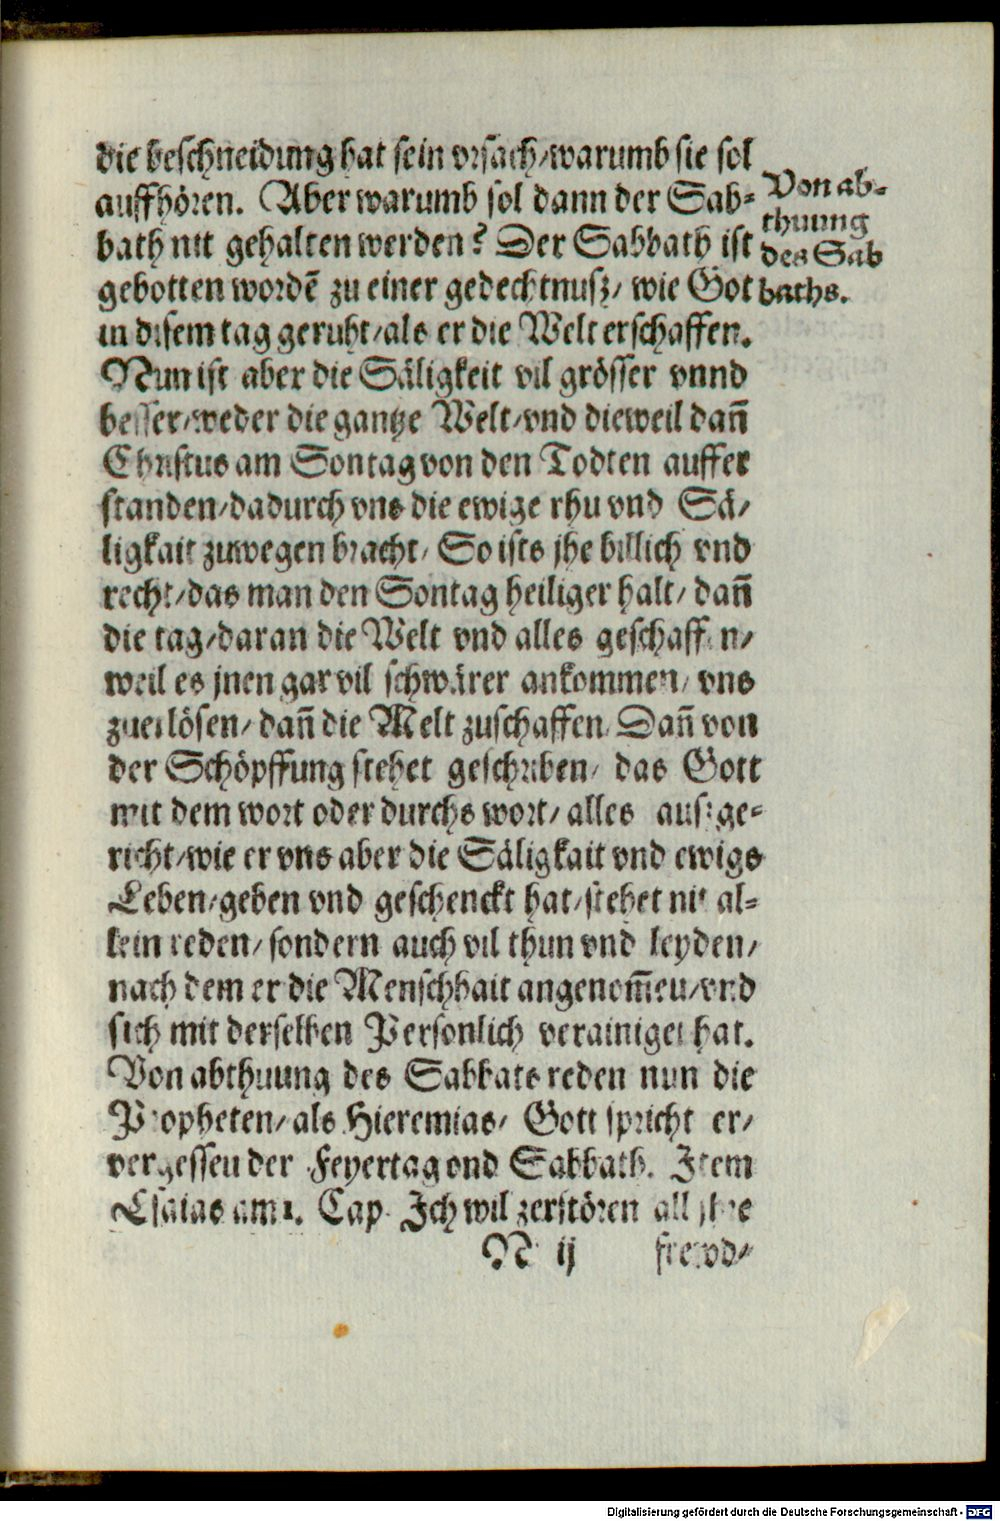 die beschneidung hat sein vrsach/warumb sie sol
auffhören. Aber warumb sol dann der Sab⸗
bath nit gehalten werden? Der Sabbath ist
gebotten wordē zu einer gedechtnusz/ wie Got
in disem tag geruht/als er die Welt erschaffen.
Nun ist aber die Säligkeit vil grösser vnnd
besser/weder die gantze Welt/vnd dieweil dañ
Christus am Sontag von den Todten auffer
standen/dadurch vns die ewige rhu vnd Sä/
ligkait zuwegen bracht/ So ists jhe billich vnd
recht/das man den Sontag heiliger halt/ dañ
die tag/daran die Welt vnd alles geschaffen/
weil es jnen gar vil schwärer ankommen/ vns
zuerlösen/ dañ die Melt zuschaffen. Dañ von
der Schöpffung stehet geschriben/ das Gott
mit dem wort oder durchs wort/ alles ausge⸗
richt/wie er vns aber die Säligkait vnd ewigs
Leben/geben vnd geschenckt hat/stehet nit al⸗
lein reden/ sondern auch vil thun vnd leyden/
nach dem er die Menschhait angenom̄en/vnd
sich mit derselben Personlich verainiget hat.
Von abthuung des Sabbats reden nun die
Propheten/als Hieremias/ Gott spricht er/
vergessen der Feyertag vnd Sabbath. Item
Esaias am 1. Cap. Ich wil zerstören all jhre
N ij frewd/
Von ab⸗
thuung
des Sab
baths.
Digitalisierung gefördert durch die Deutsche Forschungsgemeinschaft - DFG